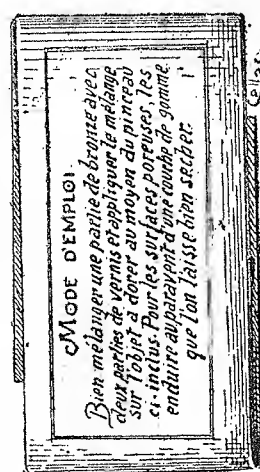 MODE D'EMPLOI.
Bien mélanger une partie de bronze avec,
deux parties de vernis et appliquer le mélange
sur l'objet a dorer au moyen du pinceau
ci-inclus. Pour les surfaces poreuses, les
enduire auparavent d'une couche de gomme
que l'on laisse bien secher.